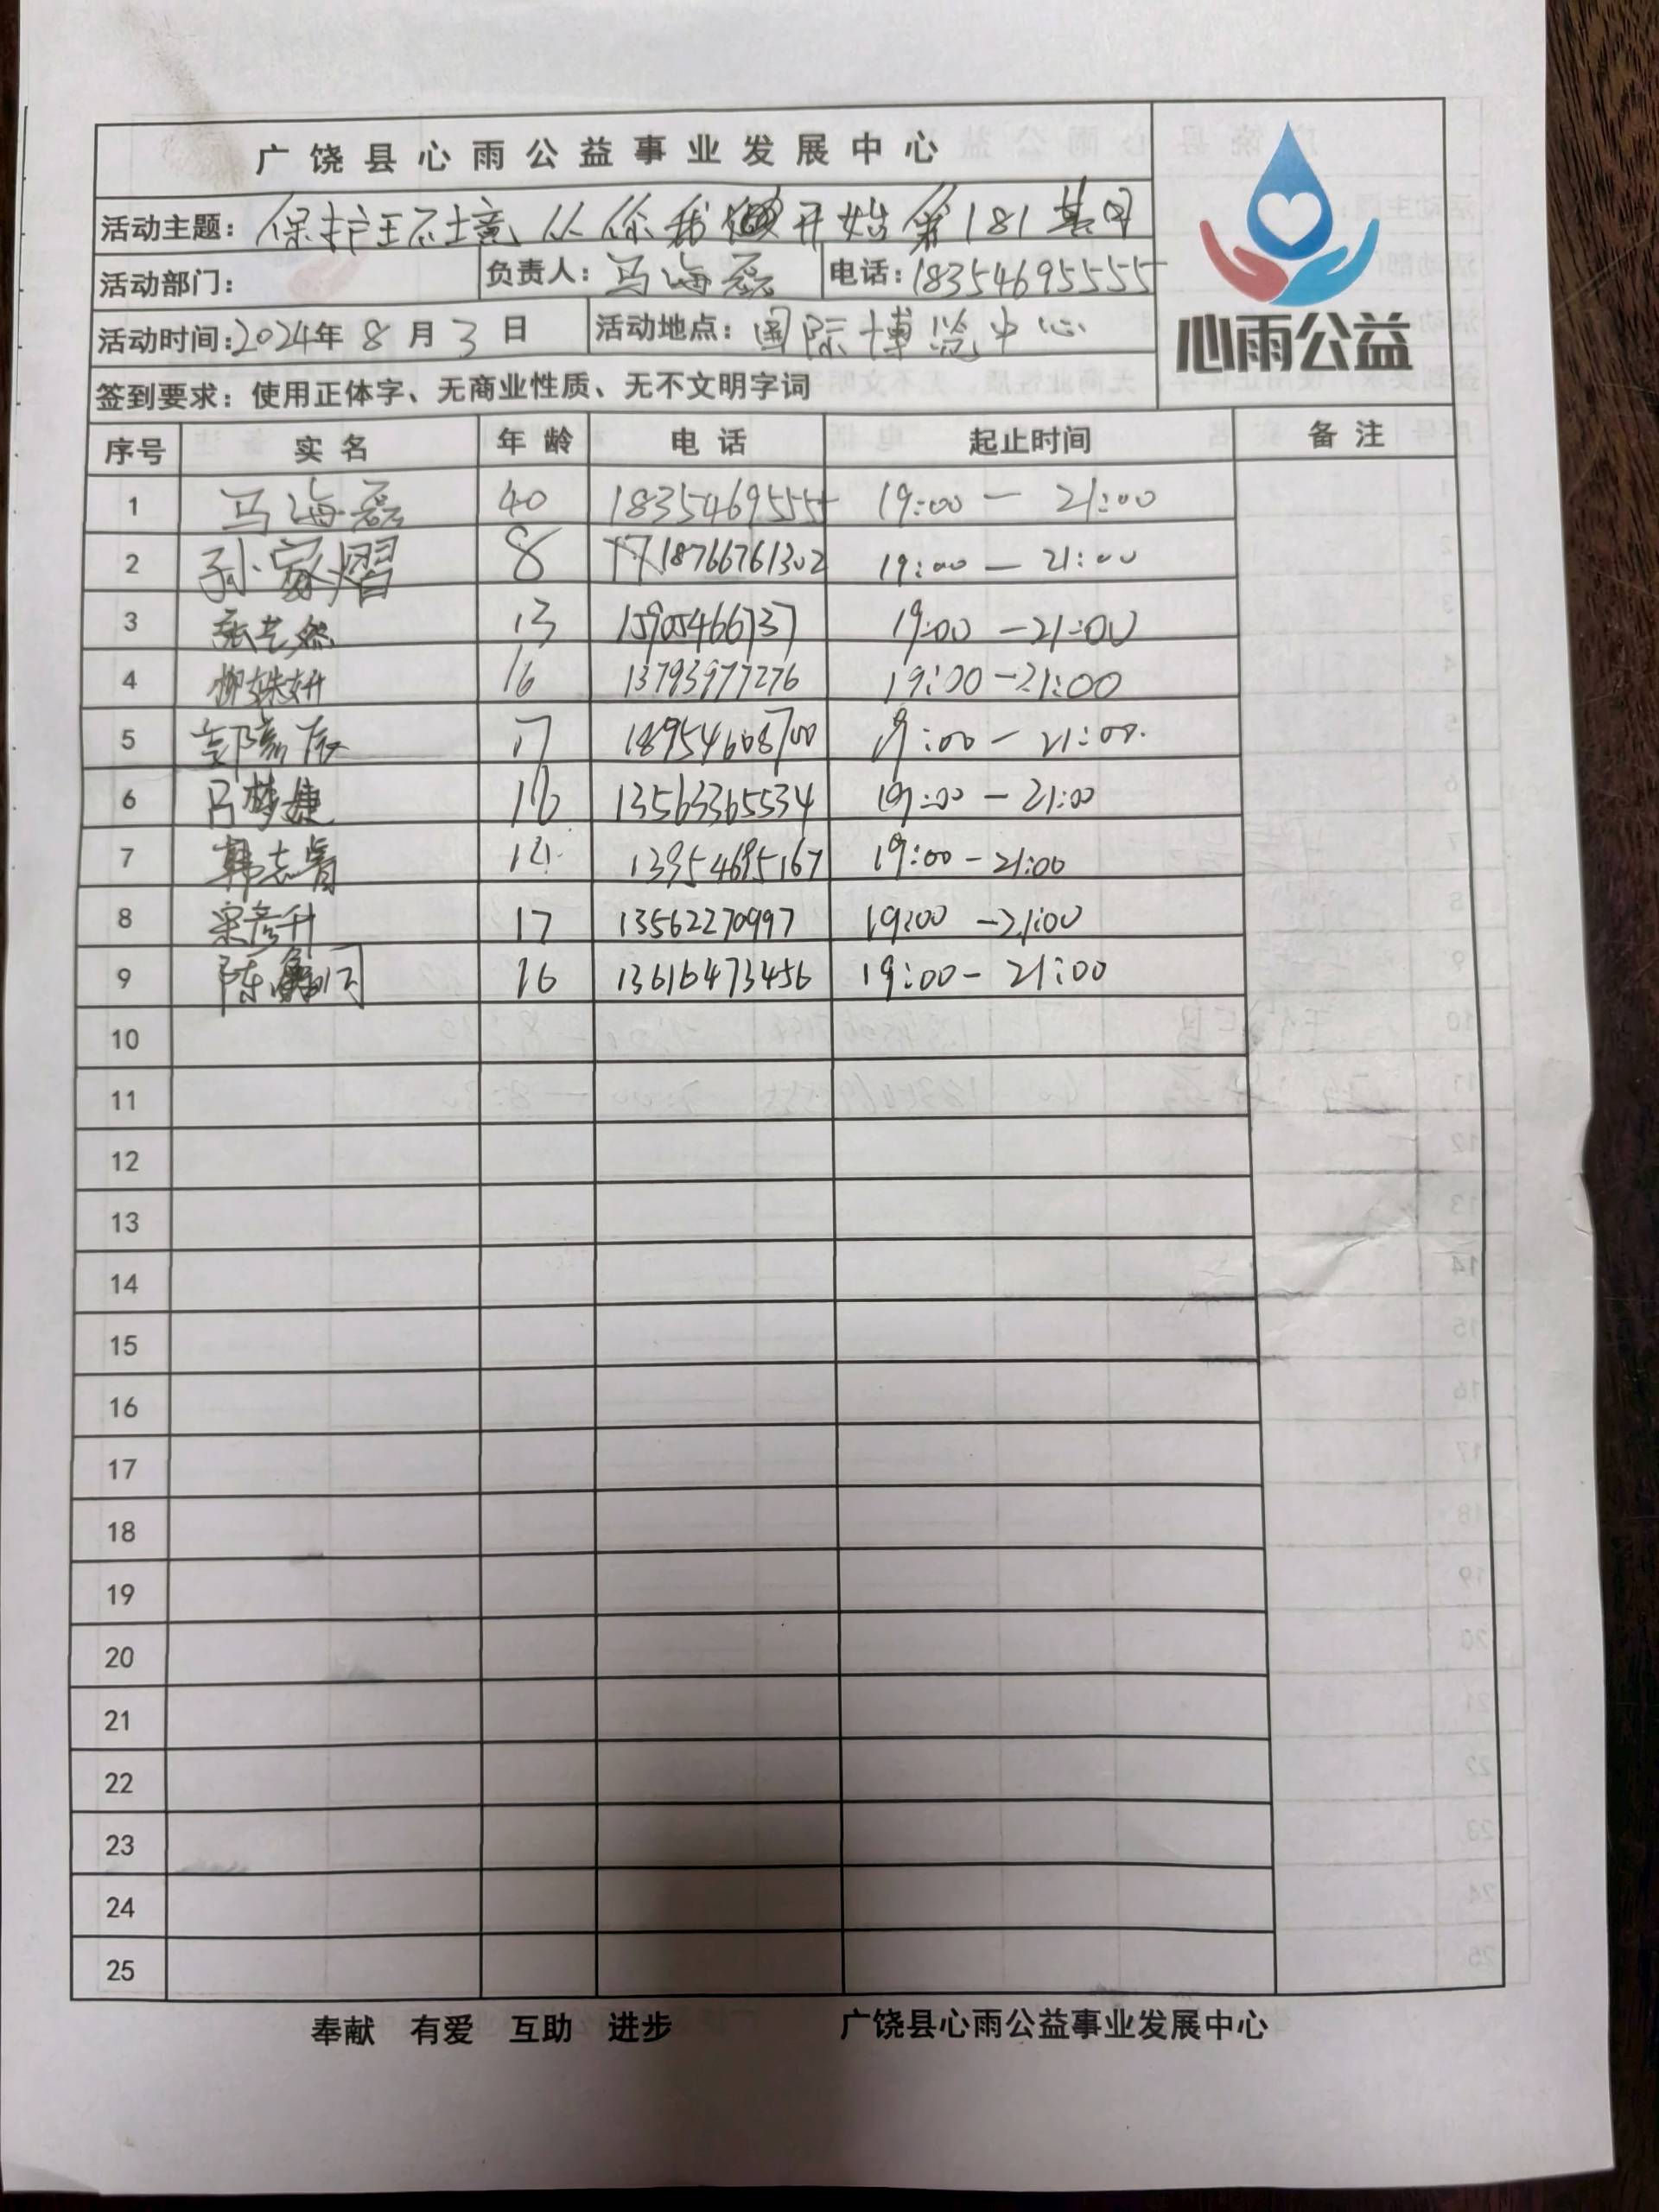 广饶县心雨公益事业发展中心
活动主题：保护环境从你我做开始第181期
心雨公益
活动部门： 负责人：马海磊 电话：18354695555
活动时间：2024年8月3日 活动地点：国际博览中心
签到要求：使用正体字、无商业性质、无不文明字词
序号 实名 年龄 电话 起止时间 备注
1 马海磊 40 18354695555 19:00 — 21:00
2 孙家熠 8 18766761302 19:00 — 21:00
3 张艺然 13 15905466737 19:00 — 21:00
4 柳姝妍 16 13793977276 19:00 — 21:00
5 17 18954608700 19:00 — 21:00
6 吕梦婕 16 13563365534 19:00 — 21:00
7 韩志睿 14 13954695167 19:00 — 21:00
8 宋彦升 17 13562270997 19:00 — 21:00
9 陈 16 13616473456 19:00 — 21:00
10
11
12
13
14
15
16
17
18
19
20
21
22
23
24
25
奉献 有爱 互助 进步 广饶县心雨公益事业发展中心